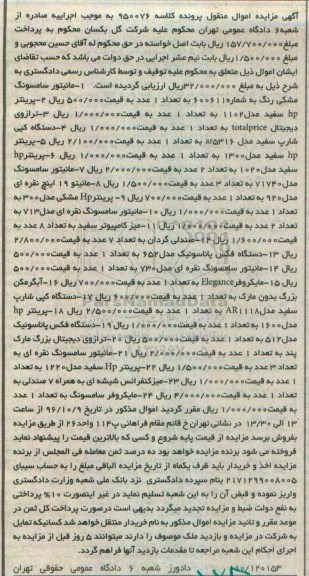 آگهی مزایده اموال منقول پرونده کلاسه ۹۵۰۰۷۶ به موجب اجراییه صادره از
شعبه۶ دادگاه عمومی تهران محکوم علیه شرکت گل یکسان محکوم به پرداخت
مبلغ ۱۵۷/۷۰۰/۰۰۰ ریال بابت اصل خواسته در حق محکوم له آقای حسین محجوبی و
مبلغ ۱/۵۰۰/۰۰۰ ریال بابت نیم عشر اجرایی در حق دولت می باشد که حسب تقاضای
ایشان اموال ذیل متعلق به محکوم علیه توقیف و توسط کارشناس رسمی دادگستری به
شرح ذیل به مبلغ ۳۲/۰۰۰/۰۰۰ ریال ارزیابی گردیده است. ۱-مانیتور سامسونگ
مشکی رنگ به شماره ۶۰۰۶۱۱ به تعداد ۱ عدد به قیمت ۵۰۰/۰۰۰ ریال ۲-پرینتر
hp سفید مدل ۱۱۰۲ به تعداد ۱ عدد به قیمت ۱/۰۰۰/۰۰۰ ریال ۳-ترازوی
دیجیتال totalprice به تعداد ۱ عدد به قیمت ۱/۰۰۰/۰۰۰ ریال ۴-دستگاه کپی
شارپ سفید مدل ar۵۳۱۶ به تعداد ۱ عدد به قیمت ۲/۱۰۰/۰۰۰ ریال ۵-پرینتر
hp سفید مدل ۱۳۰۰ به تعداد ۱ عدد به قیمت ۱/۰۰۰/۰۰۰ ریال ۶-پرینتر hp
سفید مدل ۱۰۲۰ به تعداد ۲ عدد به قیمت ۲/۰۰۰/۰۰۰ ریال ۷-مانیتور سامسونگ
مدل ۷۱۷۴۰ به تعداد ۳ عدد به قیمت ۱/۵۰۰/۰۰۰ ریال ۸-مانیتو ۱۹ اینچ نقره ای
مدل ۹۲۰ به تعداد ۱ عدد به قیمت ۷۰۰/۰۰۰ ریال ۹- پرینتر Hp مشکی مدل ۳۰۰ به
تعداد ۱ عدد به قیمت ۱/۰۰۰/۰۰۰ ریال ۱۰-مانیتور سامسونگ نقره ای مدل ۷۱۳ به
تعداد ۲ عدد به قیمت ۱/۰۰۰/۰۰۰ ریال ۱۱-میز کامپیوتر سفید به تعداد ۸ عدد به
قیمت ۱/۶۰۰/۰۰۰ ریال ۱۲-صندلی گردان به تعداد ۷ عدد به قیمت ۲/۸۰۰/۰۰۰
ریال ۱۳-دستگاه فکس پاناسونیک مدل ۶۵۲ به تعداد ۱ عدد به قیمت ۵۰۰/۰۰۰
ریال ۱۴-مانیتور سامسونگ نقره ای مدل ۷۳۰ به تعداد ۱ عدد به قیمت ۵۰۰/۰۰۰
ریال ۱۵-مایکروفر Elegance به تعداد ۱ عدد به قیمت ۷۰۰/۰۰۰ ریال ۱۶-آبگرمکن
بزرگ بدون مارک به تعداد ۱ عدد به قیمت ۶۰۰/۰۰۰ ریال ۱۷-دستگاه کپی شارپ
سفید مدل AR۱۱۱۸ به تعداد ۱ عدد به قیمت ۲/۵۰۰/۰۰۰ ریال ۱۸-پرینتر hp
مدل ۱۶۰۰ به تعداد ۱ عدد به قیمت ۱/۰۰۰/۰۰۰ ریال ۱۹-دستگاه فکس پاناسونیک
مدل ۵۱۲ به تعداد ۱ عدد به قیمت ۵۰۰/۰۰۰ ریال ۲۰-ترازوی دیجیتال بزرگ مارک
پند به تعداد ۱ عدد به قیمت ۲/۰۰۰/۰۰۰ ریال ۲۱-مانیتور سامسونگ نقره ای به
تعداد ۳ عدد به قیمت ۱/۵۰۰/۰۰۰ ریال ۲۲-پرینتر Hp سفید مدل ۱۲۲۰ به تعداد
۱ عدد به قیمت ۱/۰۰۰/۰۰۰ ریال ۲۳-میزکنفرانس شیشه ای به همراه ۷ صندلی به
تعداد ۱ عدد به قیمت ۴/۰۰۰/۰۰۰ ریال ۲۴-مایکروفر سامسونگ به تعداد ۱ عدد
به قیمت ۱/۰۰۰/۰۰۰ ریال مقرر گردید اموال مذکور در تاریخ ۹۶/۱۰/۹ از ساعت
۱۳ الی ۱۳/۳۰ در نشانی تهران خ قائم مقام فراهانی پ۱۱۴ واحد۲۶ از طریق مزایده
بفروش برسد مزایده از قیمت پایه شروع و کسی که بالاترین قیمت را پیشنهاد نماید
فروخته می شود برنده مزایده خواهد بود ده درصد ثمن معامله فی المجلس از برنده
مزایده اخذ و خریدار باید ظرف یکماه از تاریخ مزایده الباقی مبلغ را به حساب سیبای
۲۱۷۱۲۹۹۰۰۸۰۰۵ بنام سپرده دادگستری نزد بانک ملی شعبه وزارت دادگستری
واریز نموده و قبض آن را به این شعبه تسلیم نماید در غیر اینصورت ۱۰% پرداختی
به نفع دولت ضبط و مزایده تجدید میگردد بدیهی است درصورت پرداخت کل ثمن در
موعد مقرر و تائید مزایده اموال مذکور به نام خریدار منتقل خواهد شد کسانیکه تمایل
به شرکت در مزایده و بازدید ملک موصوف را دارند میتوانند ۵ روز قبل از مزایده به
اجرای احکام این شعبه مراجعه تا مقدمات بازدید آنها فراهم گردد.
۱۲۰۱۵۳/الف دادورز شعبه ۶ دادگاه عمومی حقوقی تهران